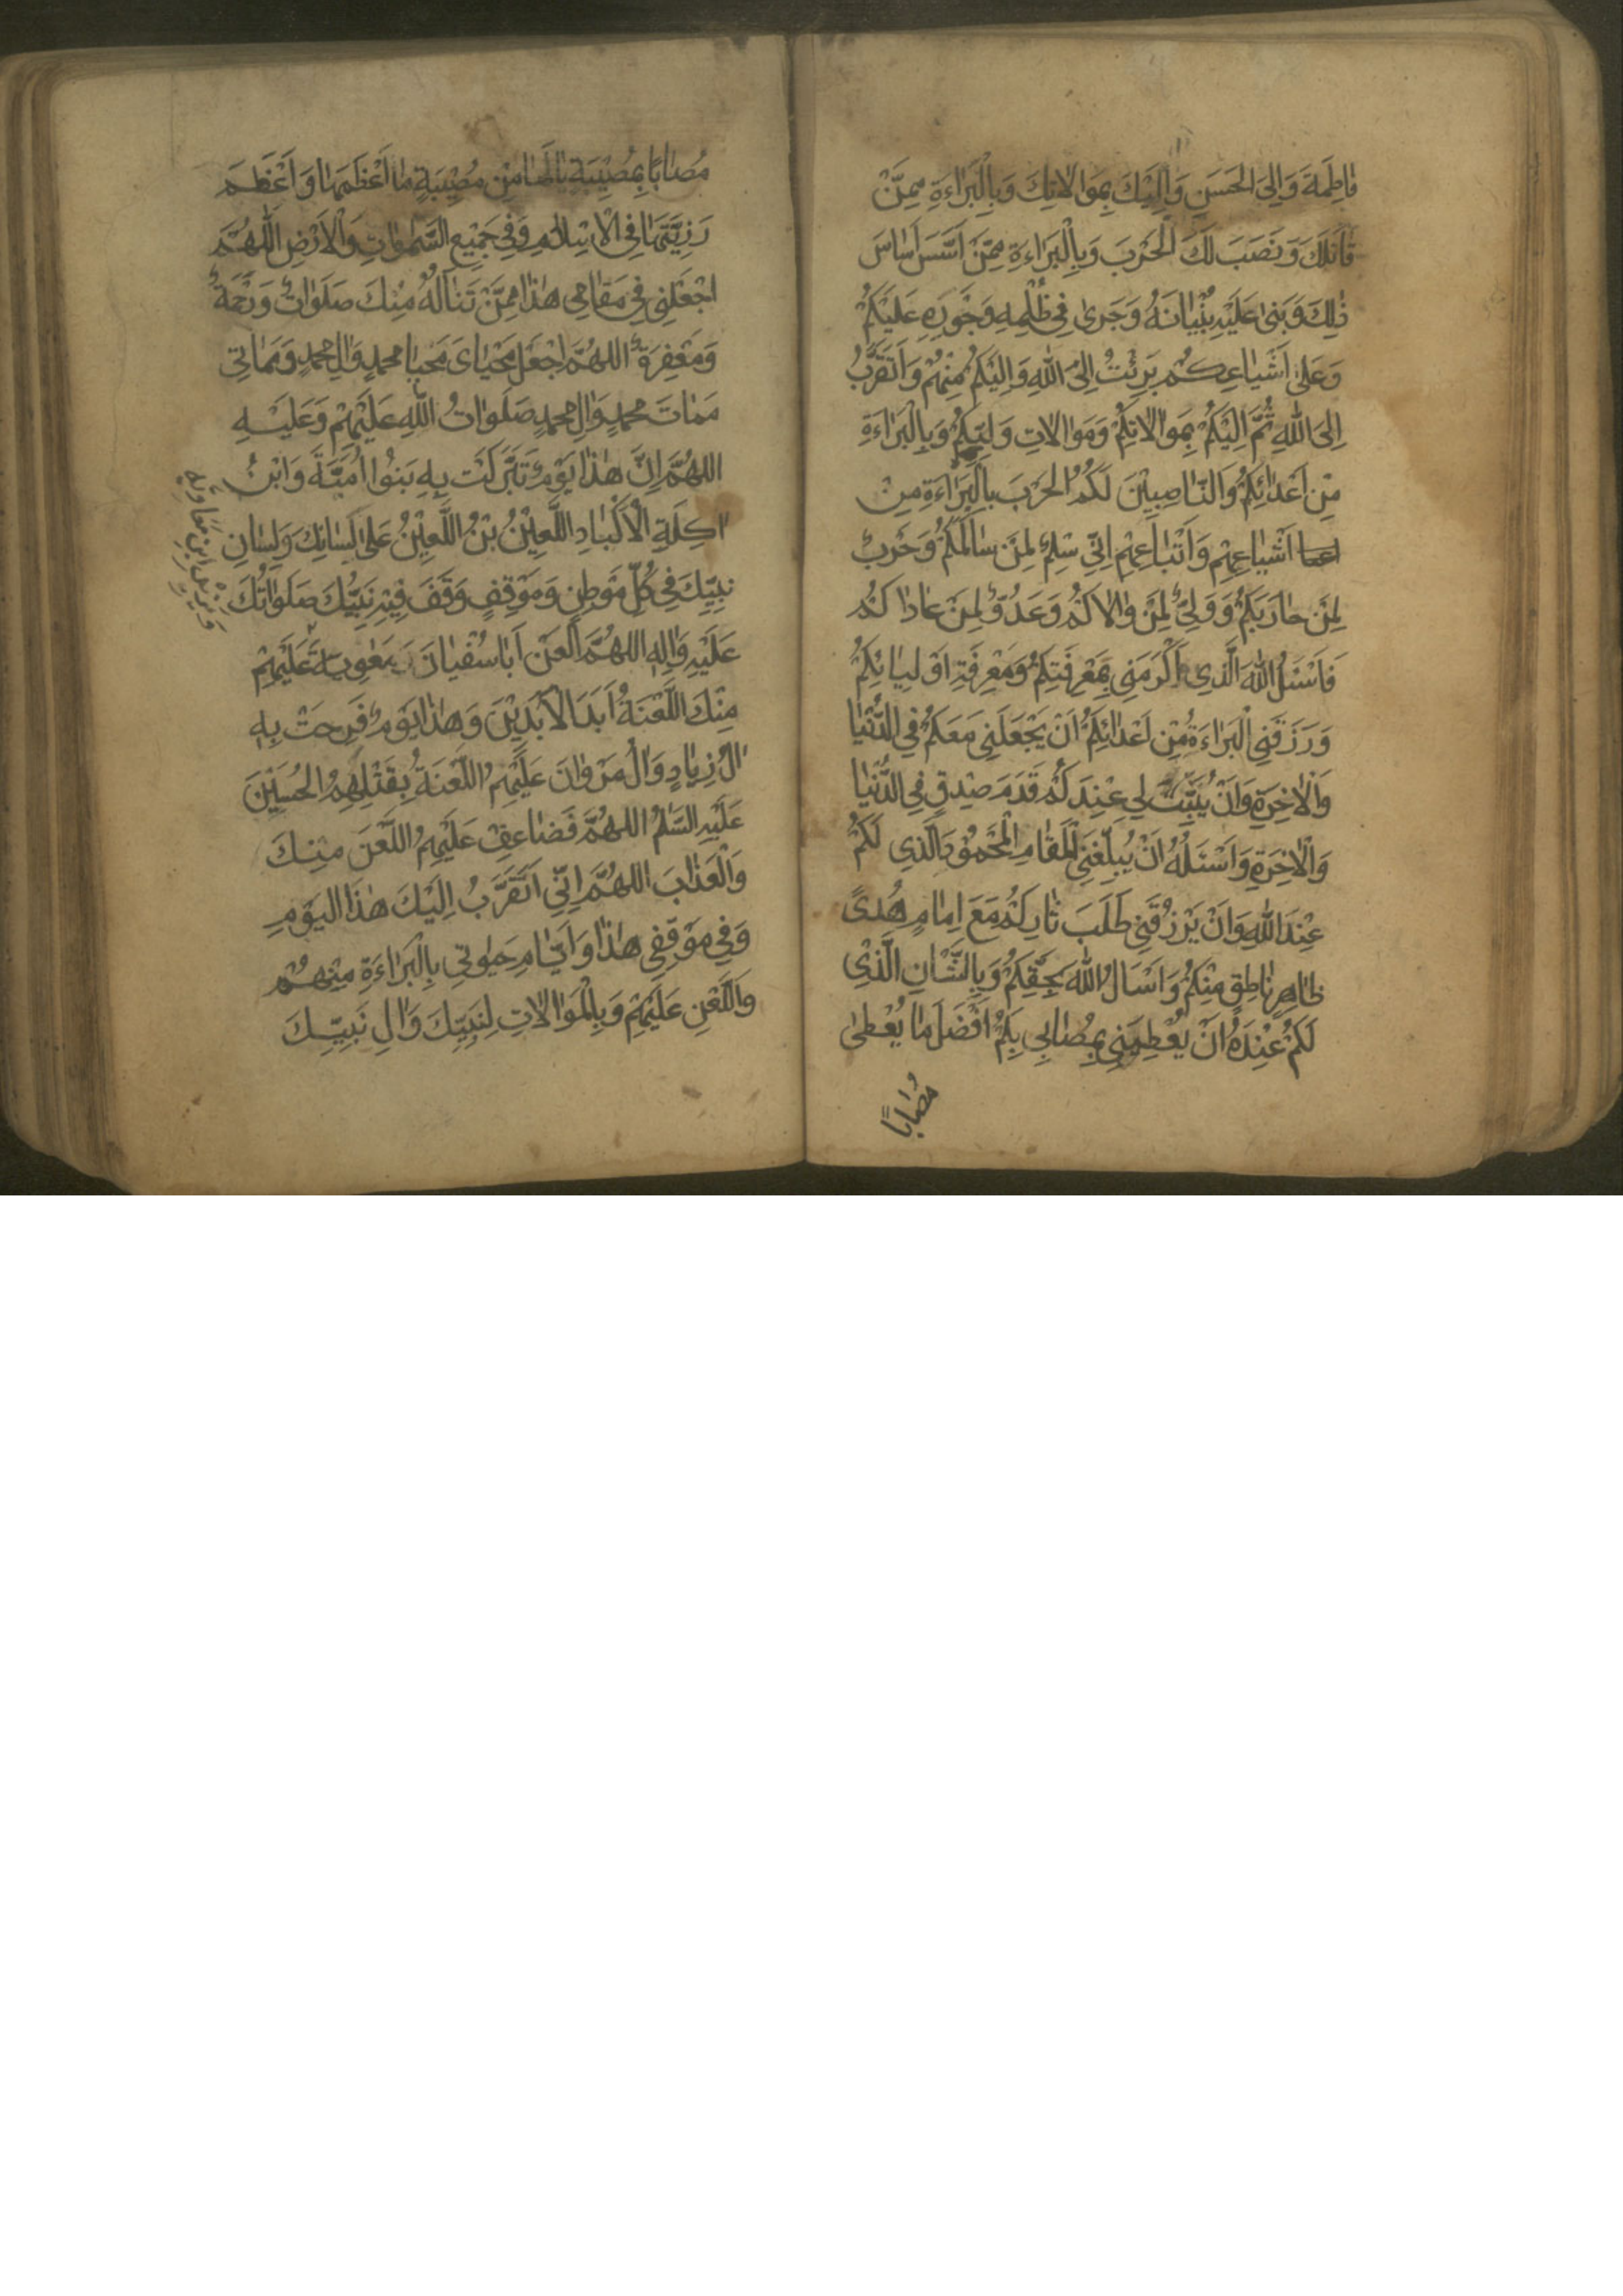 فٰاطِمَةَ وَاِلَى الحَسَنِ وَاِلَيْكَ بِمَوٰالاتِكَ وَبِالْبَرٰاءَةِ مِمَّنْ
قٰاتَلَكَ وَنَصَبَ لَكَ الْحَرْبَ وَبِالْبَرٰاءَةِ مِمَّنْ اَسَّسَ اَسٰاسَ
ذٰلِكَ وَبَنىٰ عَلَيْهِ بُنْيٰانَهُ وَجَرىٰ فِي ظُلْمِهِ وَجَوْرِهِ عَلَيْكُمْ
وَعَلىٰ اَشْيٰاعِكُمْ بَرِئْتُ اِلَى اللهِ وَاِلَيْكُمْ مِنْهُمْ وَاَتَقَرَّبُ
اِلَى اللهِ ثُمَّ اِلَيْكُمْ بِمَوٰالاتِكُمْ وَمَوٰالاتِ وَلِيِّكُمْ وَبِالْبَرٰاءَةِ
مِنْ اَعْدٰائِكُمْ وَالنّٰاصِبِيْنَ لَكُمُ الْحَرْبَ بِالْبَرٰاءَةِ مِنْ
اَشْيٰاعِهِمْ وَاَتْبٰاعِهِمْ اِنّي سِلْمٌ لِمَنْ سٰالَمَكُمْ وَحَرْبٌ
لِمَنْ حٰارَبَكُمْ وَوَلِيٌّ لِمَنْ وٰالاكُمْ وَعَدُوٌّ لِمَنْ عٰادٰاكُمْ
فَاَسْئَلُ اللهَ الَّذِي اَكْرَمَنِي بِمَعْرِفَتِكُمْ وَمَعْرِفَةِ اَوْلِيٰائِكُمْ
وَرَزَقَنِي الْبَرٰاءَةَ مِنْ اَعْدٰائِكُمْ اَنْ يَجْعَلَنِي مَعَكُمْ فِي الدُّنْيٰا
وَالْاٰخِرَةِ وَاَنْ يُثَبِّتَ لِي عِنْدَكُمْ قَدَمَ صِدْقٍ فِي الدُّنْيٰا
وَالْاٰخِرَةِ وَاَسْئَلُهُ اَنْ يُبَلِّغَنِي الْمَقٰامَ الْمَحْمُوْدَ الَّذِي لَكُمْ
عِنْدَ اللهِ وَاَنْ يَرْزُقَنِي طَلَبَ ثٰارِكُمْ مَعَ اِمٰامٍ هُدىً
ظٰاهِرٍ نٰاطِقٍ مِنْكُمْ وَاَسْاَلُ اللهَ بِحَقِّكُمْ وَبِالشَّانِ الَّذِي
لَكُمْ عِنْدَهُ اَنْ يُعْطِيَنِي بِمُصٰابِي بِكُمْ اَفْضَلَ مٰا يُعْطىٰ
مُصٰابًا
مُصٰابًا بِمُصِيْبَةٍ يٰا لَهٰا مِنْ مُصِيْبَةٍ مٰا اَعْظَمَهٰا وَاَعْظَمَ
رَزِيَّتَهٰا فِي الْاِسْلٰامِ وَفِي جَمِيْعِ السَّمٰوٰاتِ وَالْاَرْضِ اَللّٰهُمَّ
اجْعَلْنِي فِي مَقٰامِي هٰذٰا مِمَّنْ تَنٰالُهُ مِنْكَ صَلَوٰاتٌ وَرَحْمَةٌ
وَمَغْفِرَةٌ اللهُمَّ اجْعَلْ مَحْيٰاىَ مَحْيٰا محمدٍ وَاٰلِ محمدٍ وَمَمٰاتِي
مَمٰاتَ محمدٍ وَاٰلِ محمدٍ صَلَوٰاتُ اللّٰهِ عَلَيْهِمْ وَعَلَيْهِ
اللهُمَّ اِنَّ هٰذٰا يَوْمٌ تَبَرَّكَتْ بِهِ بَنُوا اُمَيَّةَ وَابْنُ
اٰكِلَةِ الْاَكْبٰادِ اللَّعِيْنُ بْنُ اللَّعِيْنُ عَلىٰ لِسٰانِكَ وَلِسٰانِ
نَبِيِّكَ فِي كُلِّ مَوْطِنٍ وَمَوْقِفٍ وَقَفَ فِيْهِ نَبِيُّكَ صَلَوٰاتُكَ
عَلَيْهِ وَاٰلِهِ اللهُمَّ الْعَنْ اَبٰا سُفْيٰانَ وَمَعٰوِيَةَ عَلَيْهِمْ
وَيَزِيْدَ ابْنِ مَعٰاوِيَةَ
مِنْكَ اللَّعْنَةُ اَبَدَ الْاٰبَدِيْنَ وَهٰذٰا يَوْمٌ فَرِحَتْ بِهِ
اٰلُ زِيٰادٍ وَاٰلُ مَرْوٰانَ عَلَيْهِمُ اللَّعْنَةُ بِقَتْلِهِمُ الْحُسَيْنَ
عَلَيْهِ السَّلٰمُ اللهُمَّ فَضٰاعِفْ عَلَيْهِمُ اللَّعْنَ مِنْكَ
وَالْعَذٰابَ اللهُمَّ اِنّي اَتَقَرَّبُ اِلَيْكَ هٰذَا الْيَوْمِ
وَفِي مَوْقِفِي هٰذٰا وَاَيّٰامِ حَيٰوتِي بِالْبَرٰاءَةِ مِنْهُمْ
وَاللَّعْنِ عَلَيْهِمْ وَبِالْمَوٰالاتِ لِنَبِيِّكَ وَاٰلِ نَبِيِّكَ